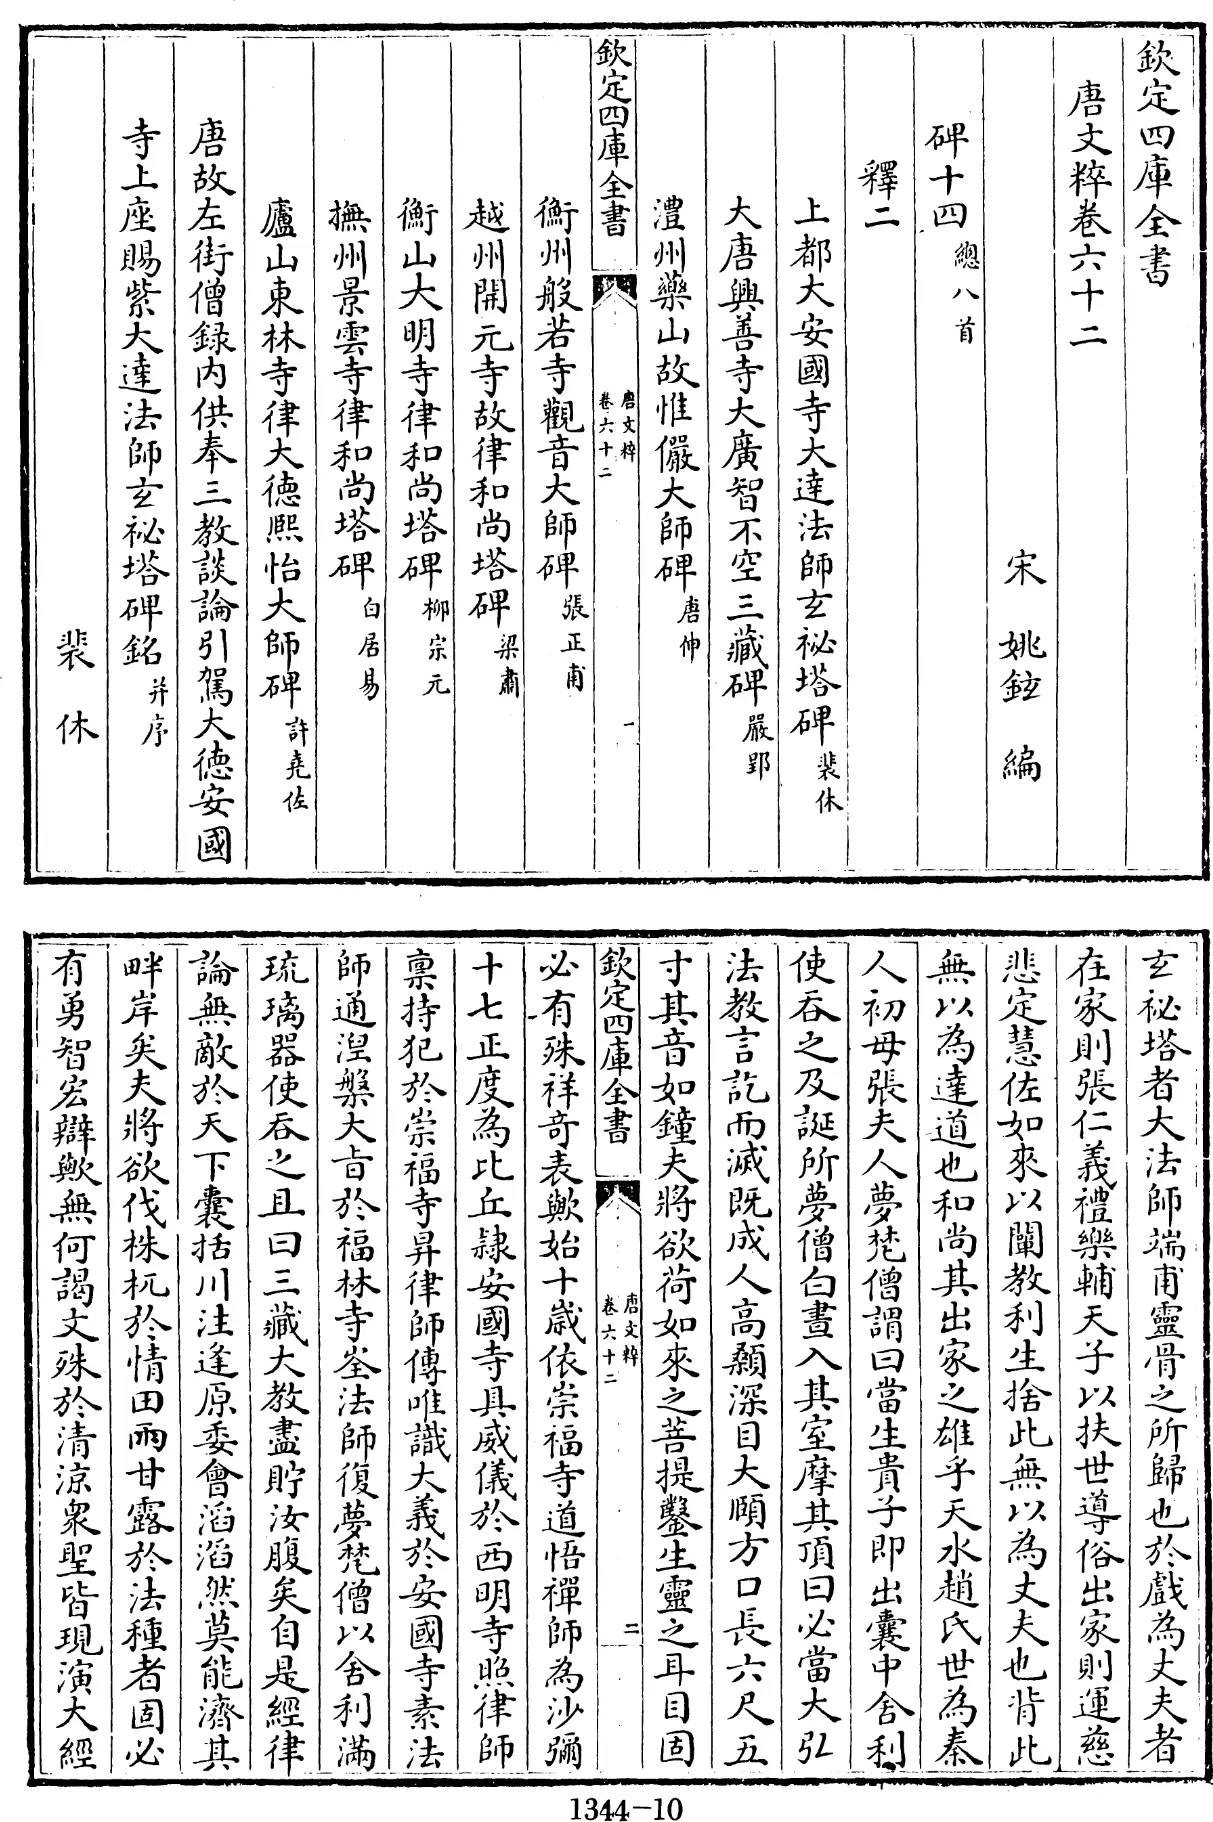 欽定四庫全書
唐文粹卷六十二
宋 姚鉉 編
碑十四 總八首
釋二
上都大安國寺大達法師玄祕塔碑 裴休
大唐興善寺大廣智不空三藏碑 嚴郢
澧州藥山故惟儼大師碑 唐伸
欽定四庫全書
唐文粹
卷六十二
一
衡州般若寺觀音大師碑 張正甫
越州開元寺故律和尚塔碑 梁肅
衡山大明寺律和尚塔碑 柳宗元
撫州景雲寺律和尚塔碑 白居易
廬山東林寺律大德熙怡大師碑 許堯佐
唐故左街僧録内供奉三教談論引駕大德安國
寺上座賜紫大達法師玄祕塔碑銘 并序
裴休
玄祕塔者大法師端甫靈骨之所歸也於戲為丈夫者
在家則張仁義禮樂輔天子以扶世導俗出家則運慈
悲定慧佐如來以闡教利生捨此無以為丈夫也背此
無以為達道也和尚其出家之雄乎天水趙氏世為秦
人初母張夫人夢梵僧謂曰當生貴子即出囊中舍利
使吞之及誕所夢僧白晝入其室摩其頂曰必當大弘
法教言訖而滅既成人高顙深目大頤方口長六尺五
寸其音如鐘夫將欲荷如來之菩提鑿生靈之耳目固
欽定四庫全書
唐文粹
卷六十二
二
必有殊祥奇表歟始十歲依崇福寺道悟禪師為沙彌
十七正度為比丘隸安國寺具威儀於西明寺照律師
稟持犯於崇福寺昇律師傳唯識大義於安國寺素法
師通涅槃大旨於福林寺崟法師復夢梵僧以舍利滿
琉璃器使吞之且曰三藏大教盡貯汝腹矣自是經律
論無敵於天下囊括川注逢原委會滔滔然莫能濟其
畔岸矣夫將欲伐株杌於情田雨甘露於法種者固必
有勇智宏辯歟無何謁文殊於清涼衆聖皆現演大經
1344-10